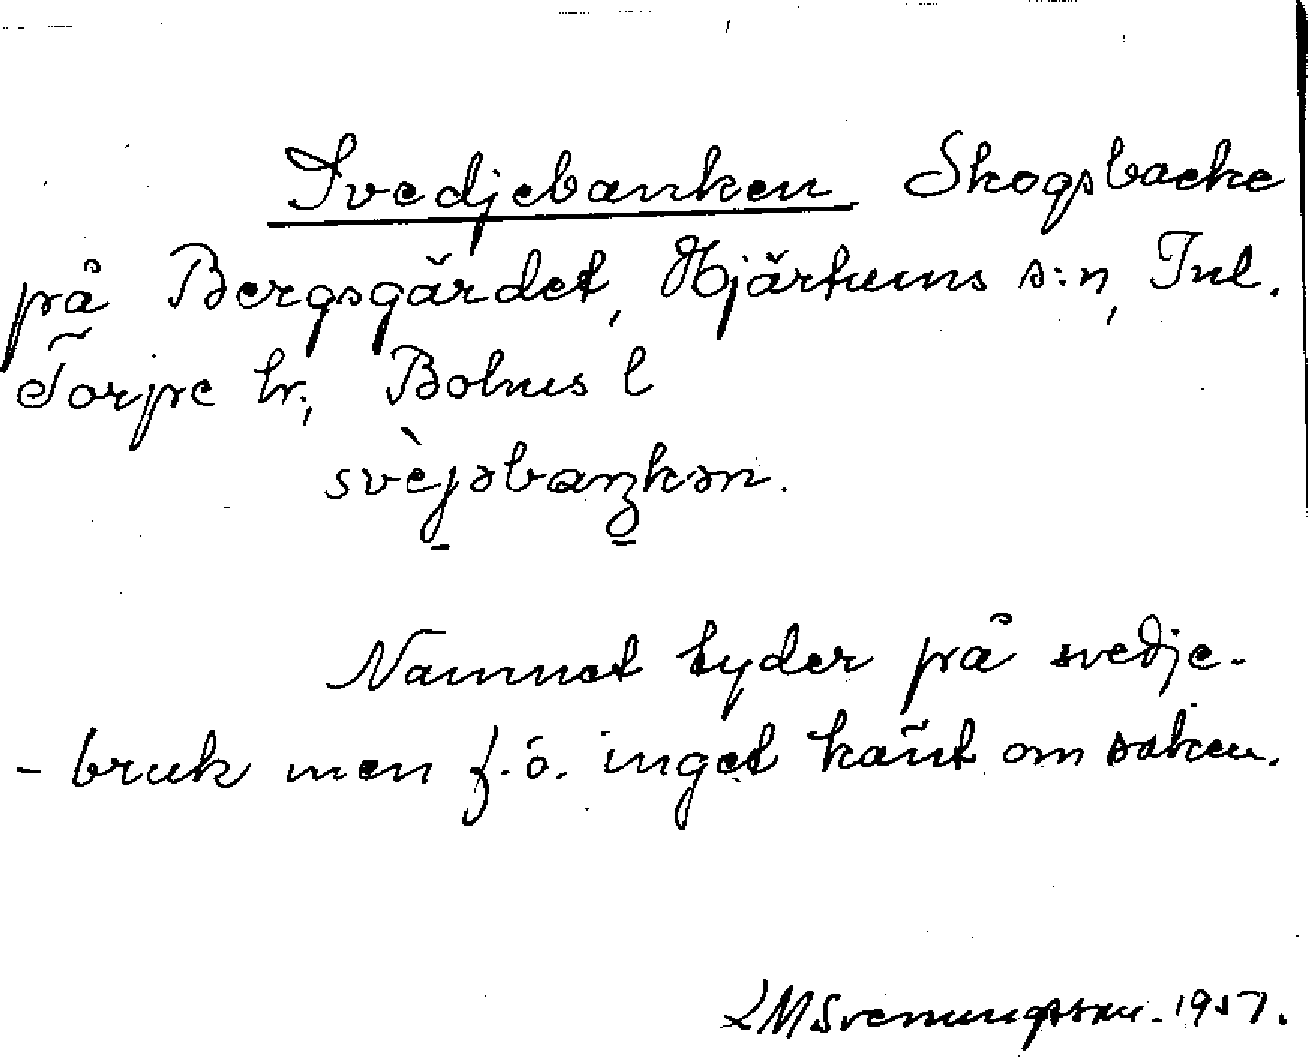 Svedjebanken Skogsbacke
på Bergsgärdet, Hjärtums s:n, Inl.
Torpe hr., Bohus l
svèjəbaŋkən.
Namnet tyder på svedje-
- bruk men f.ö. inget känt om saken.
LM Svenungsson. 1957.